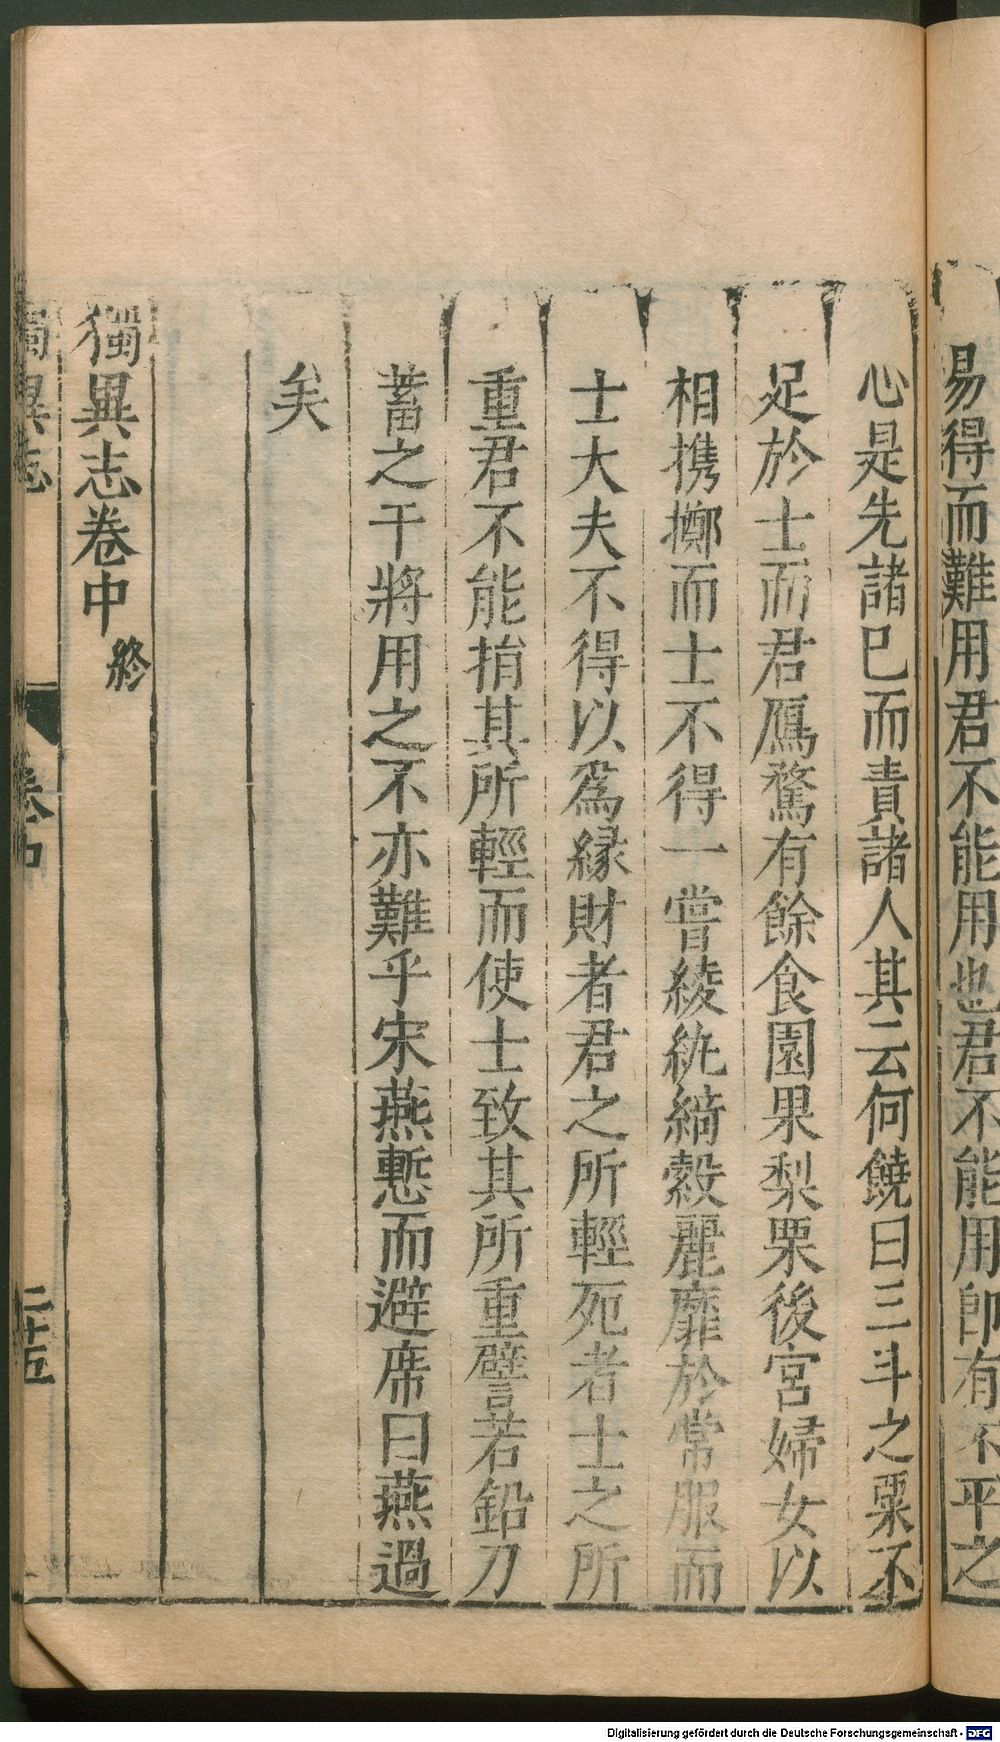 易得而難用君不能用也君不能用卽有不平之
心是先諸已而責諸人其云何饒曰三斗之粟不
足於士而君鴈鶩有餘食園果梨栗後宮婦女以
相携擲而士不得一嘗綾紈綺縠麗靡於常服而
士大夫不得以爲緣財者君之所輕死者士之所
重君不能捐其所輕而使士致其所重譬若鉛刀
蓄之干將用之不亦難乎宋燕慙而避席曰燕過
矣
獨異志卷中終
獨異志 卷中 二十五
Digitalisierung gefördert durch die Deutsche Forschungsgemeinschaft - DFG